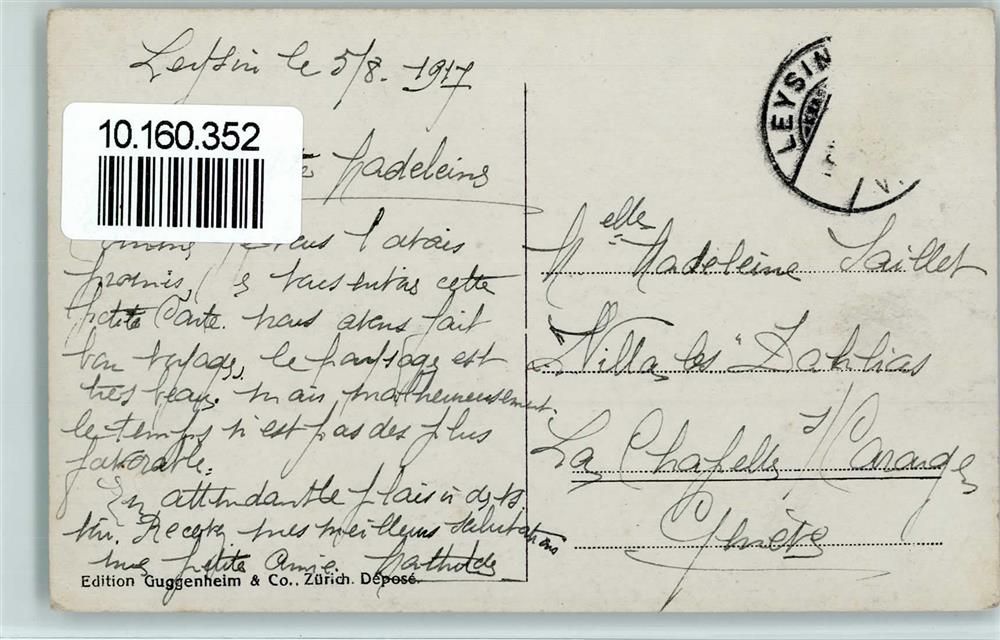 Leysin le 5/8. 1917
10.160.352
Madeleine
je vous l'avais
promis, je vous envoie cette
petite Carte. nous avons fait
bon voyage, le paysage est
très beau. mais malheureusement
le temps n'est pas des plus
favorable.
En attendant le plaisir de vs.
mes meilleures salutations
petite amie. Mathilde
Edition Guggenheim & Co., Zürich. Déposé.
LEYSIN
Melle Madeleine
Villa les "Dahlias
La Chapelle s/ Carouge
Genève